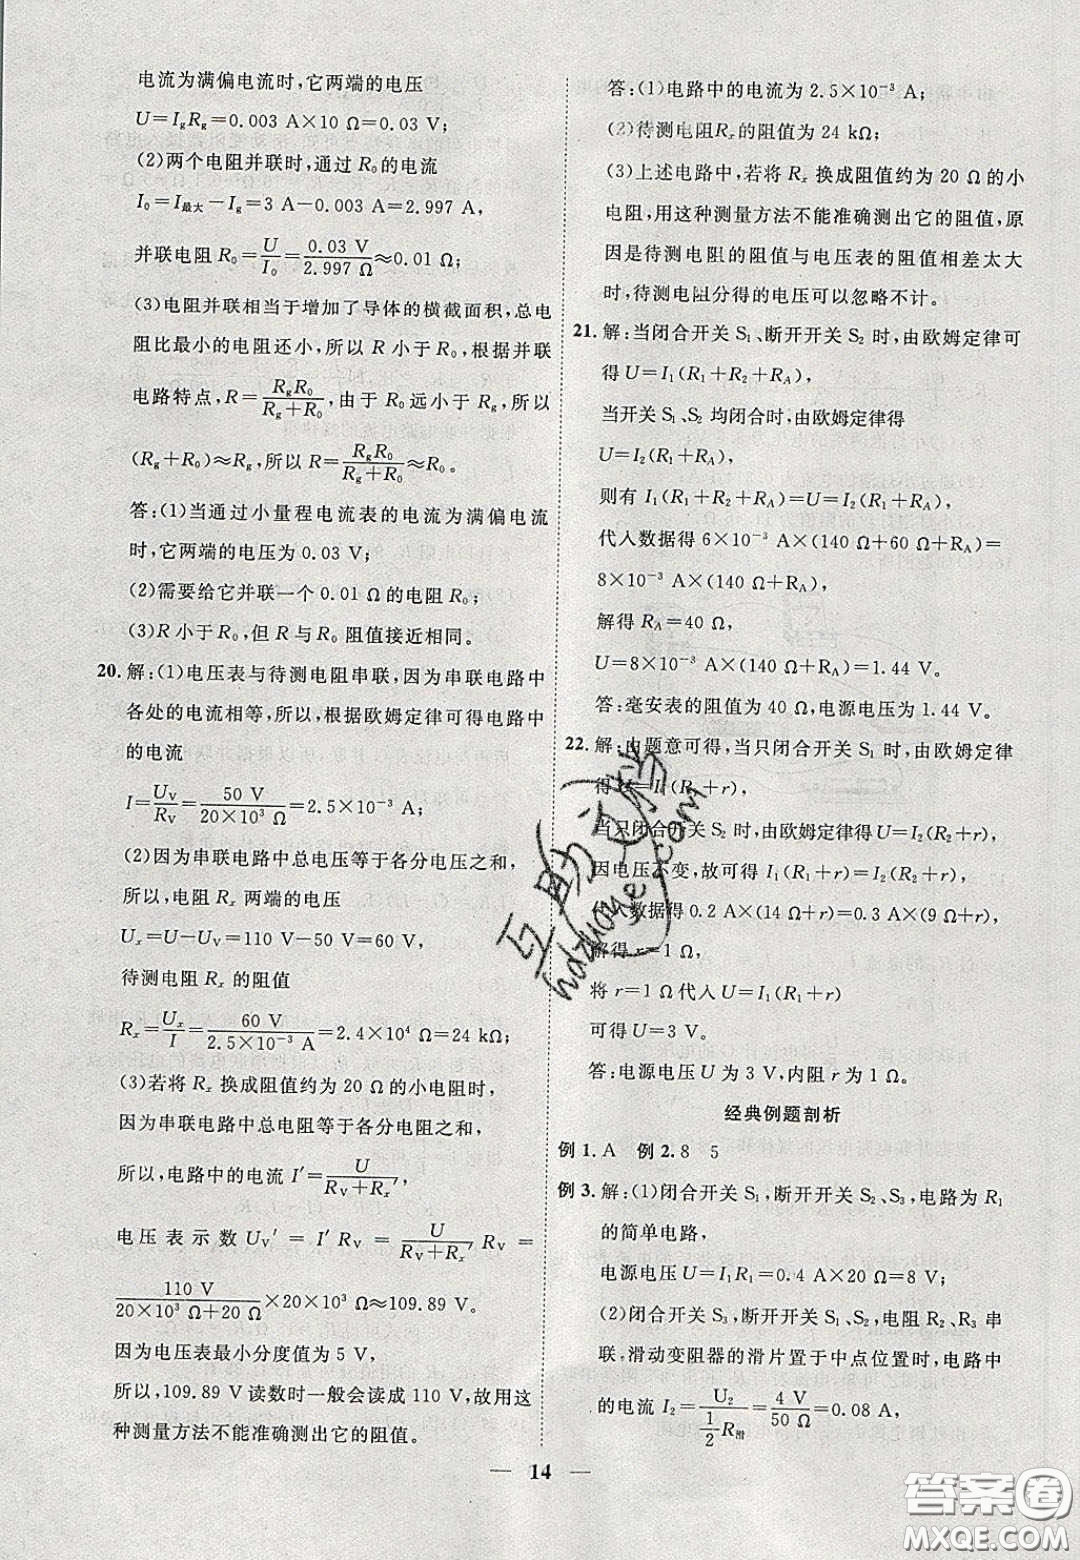 电流为满偏电流时,它两端的电压
U=IgRg=0.003 A×10 Ω=0.03 V;
(2)两个电阻并联时,通过 R0 的电流
I0=I最大-Ig=3 A-0.003 A=2.997 A,
并联电阻 R0=U/I0=0.03 V/2.997 Ω≈0.01 Ω;
(3)电阻并联相当于增加了导体的横截面积,总电
阻比最小的电阻还小,所以 R 小于 R0,根据并联
电路特点,R=RgR0/(Rg+R0),由于 R0 远小于 Rg,所以
(Rg+R0)≈Rg,所以 R=RgR0/(Rg+R0)≈R0。
答:(1)当通过小量程电流表的电流为满偏电流
时,它两端的电压为 0.03 V;
(2)需要给它并联一个 0.01 Ω的电阻 R0;
(3)R 小于 R0,但 R 与 R0 阻值接近相同。
20. 解:(1)电压表与待测电阻串联,因为串联电路中
各处的电流相等,所以,根据欧姆定律可得电路中
的电流
I=UV/RV=50 V/(20×10³ Ω)=2.5×10⁻³ A;
(2)因为串联电路中总电压等于各分电压之和,
所以,电阻 Rx 两端的电压
Ux=U-UV=110 V-50 V=60 V;
待测电阻 Rx 的阻值
Rx=Ux/I=60 V/(2.5×10⁻³ A)=2.4×10⁴ Ω=24 kΩ;
(3)若将 Rx 换成阻值约为 20 Ω的小电阻时,
因为串联电路中总电阻等于各分电阻之和,
所以,电路中的电流 I′=U/(RV+Rx′),
电压表示数 UV′=I′RV=U/(RV+Rx′)RV=
110 V/(20×10³ Ω+20 Ω)×20×10³ Ω≈109.89 V。
因为电压表最小分度值为 5 V,
所以,109.89 V 读数时一般会读成 110 V,故用这
种测量方法不能准确测出它的阻值。
答:(1)电路中的电流为 2.5×10⁻³ A;
(2)待测电阻Rx的阻值为 24 kΩ;
(3)上述电路中,若将 Rx 换成阻值约为 20 Ω的小
电阻,用这种测量方法不能准确测出它的阻值,原
因是待测电阻的阻值与电压表的阻值相差太大
时,待测电阻分得的电压可以忽略不计。
21. 解:当闭合开关 S1、断开开关 S2 时,由欧姆定律可
得 U=I1(R1+R2+RA),
当开关 S1、S2 均闭合时,由欧姆定律得
U=I2(R1+RA),
则有 I1(R1+R2+RA)=U=I2(R1+RA),
代入数据得 6×10⁻³ A×(140 Ω+60 Ω+RA)=
8×10⁻³ A×(140 Ω+RA),
解得 RA=40 Ω,
U=8×10⁻³ A×(140 Ω+RA)=1.44 V。
答:毫安表的阻值为 40 Ω,电源电压为 1.44 V。
22. 解:由题意可得,当只闭合开关 S1 时,由欧姆定律
得 U=I1(R1+r);
当只闭合开关 S2 时,由欧姆定律得 U=I2(R2+r);
因电压不变,故可得 I1(R1+r)=I2(R2+r),
代入数据得 0.2 A×(14 Ω+r)=0.3 A×(9 Ω+r),
解得 r=1 Ω,
将 r=1 Ω代入 U=I1(R1+r)
可得 U=3 V。
答:电源电压 U 为 3 V,内阻 r 为 1 Ω。
经典例题剖析
例 1. A 例 2. 8 5
例 3. 解:(1)闭合开关 S1,断开开关 S2、S3,电路为 R1
的简单电路,
电源电压 U=I1R1=0.4 A×20 Ω=8 V;
(2)闭合开关 S3,断开开关 S1、S2,电阻 R2、R3 串
联,滑动变阻器的滑片置于中点位置时,电路中
的电流 I2=U2/(½R滑)=4 V/50 Ω=0.08 A,
— 14 —
互助文档
hdzuoye.com
答案圈
MXQE.COM